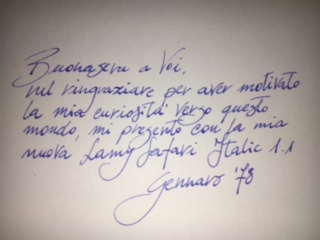 Buonasera a Voi,
nel ringraziare per aver motivato
la mia curiosità verso questo
mondo, mi presento con la mia
nuova Lamy Safari Italic 1.1
Gennaro '78